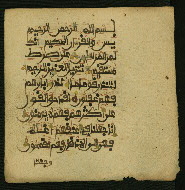 بسم الله الرحمن الرحيم
يس والقرءان الحكيم إنك
لمن المرسلين على صراط
مستقيم تنزيل العزيز الرحيم
لتنذر قوما ما أنذر ءاباؤهم
فهم غافلون لقد حق القول
على أكثرهم فهم لا يؤمنون
إنا جعلنا في أعناقهم أغلالا
فهي إلى الأذقان فهم مقمحون
وجعلنا